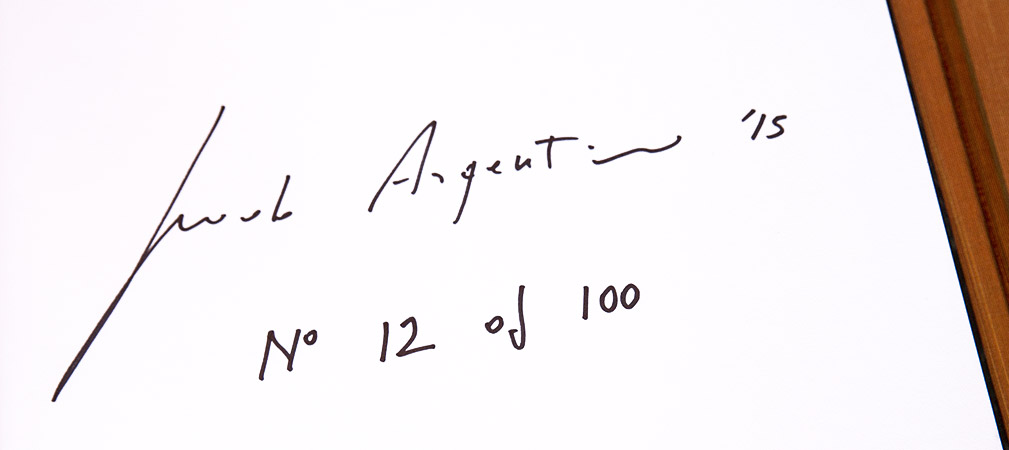 Jacob Argent '15
Nº 12 of 100